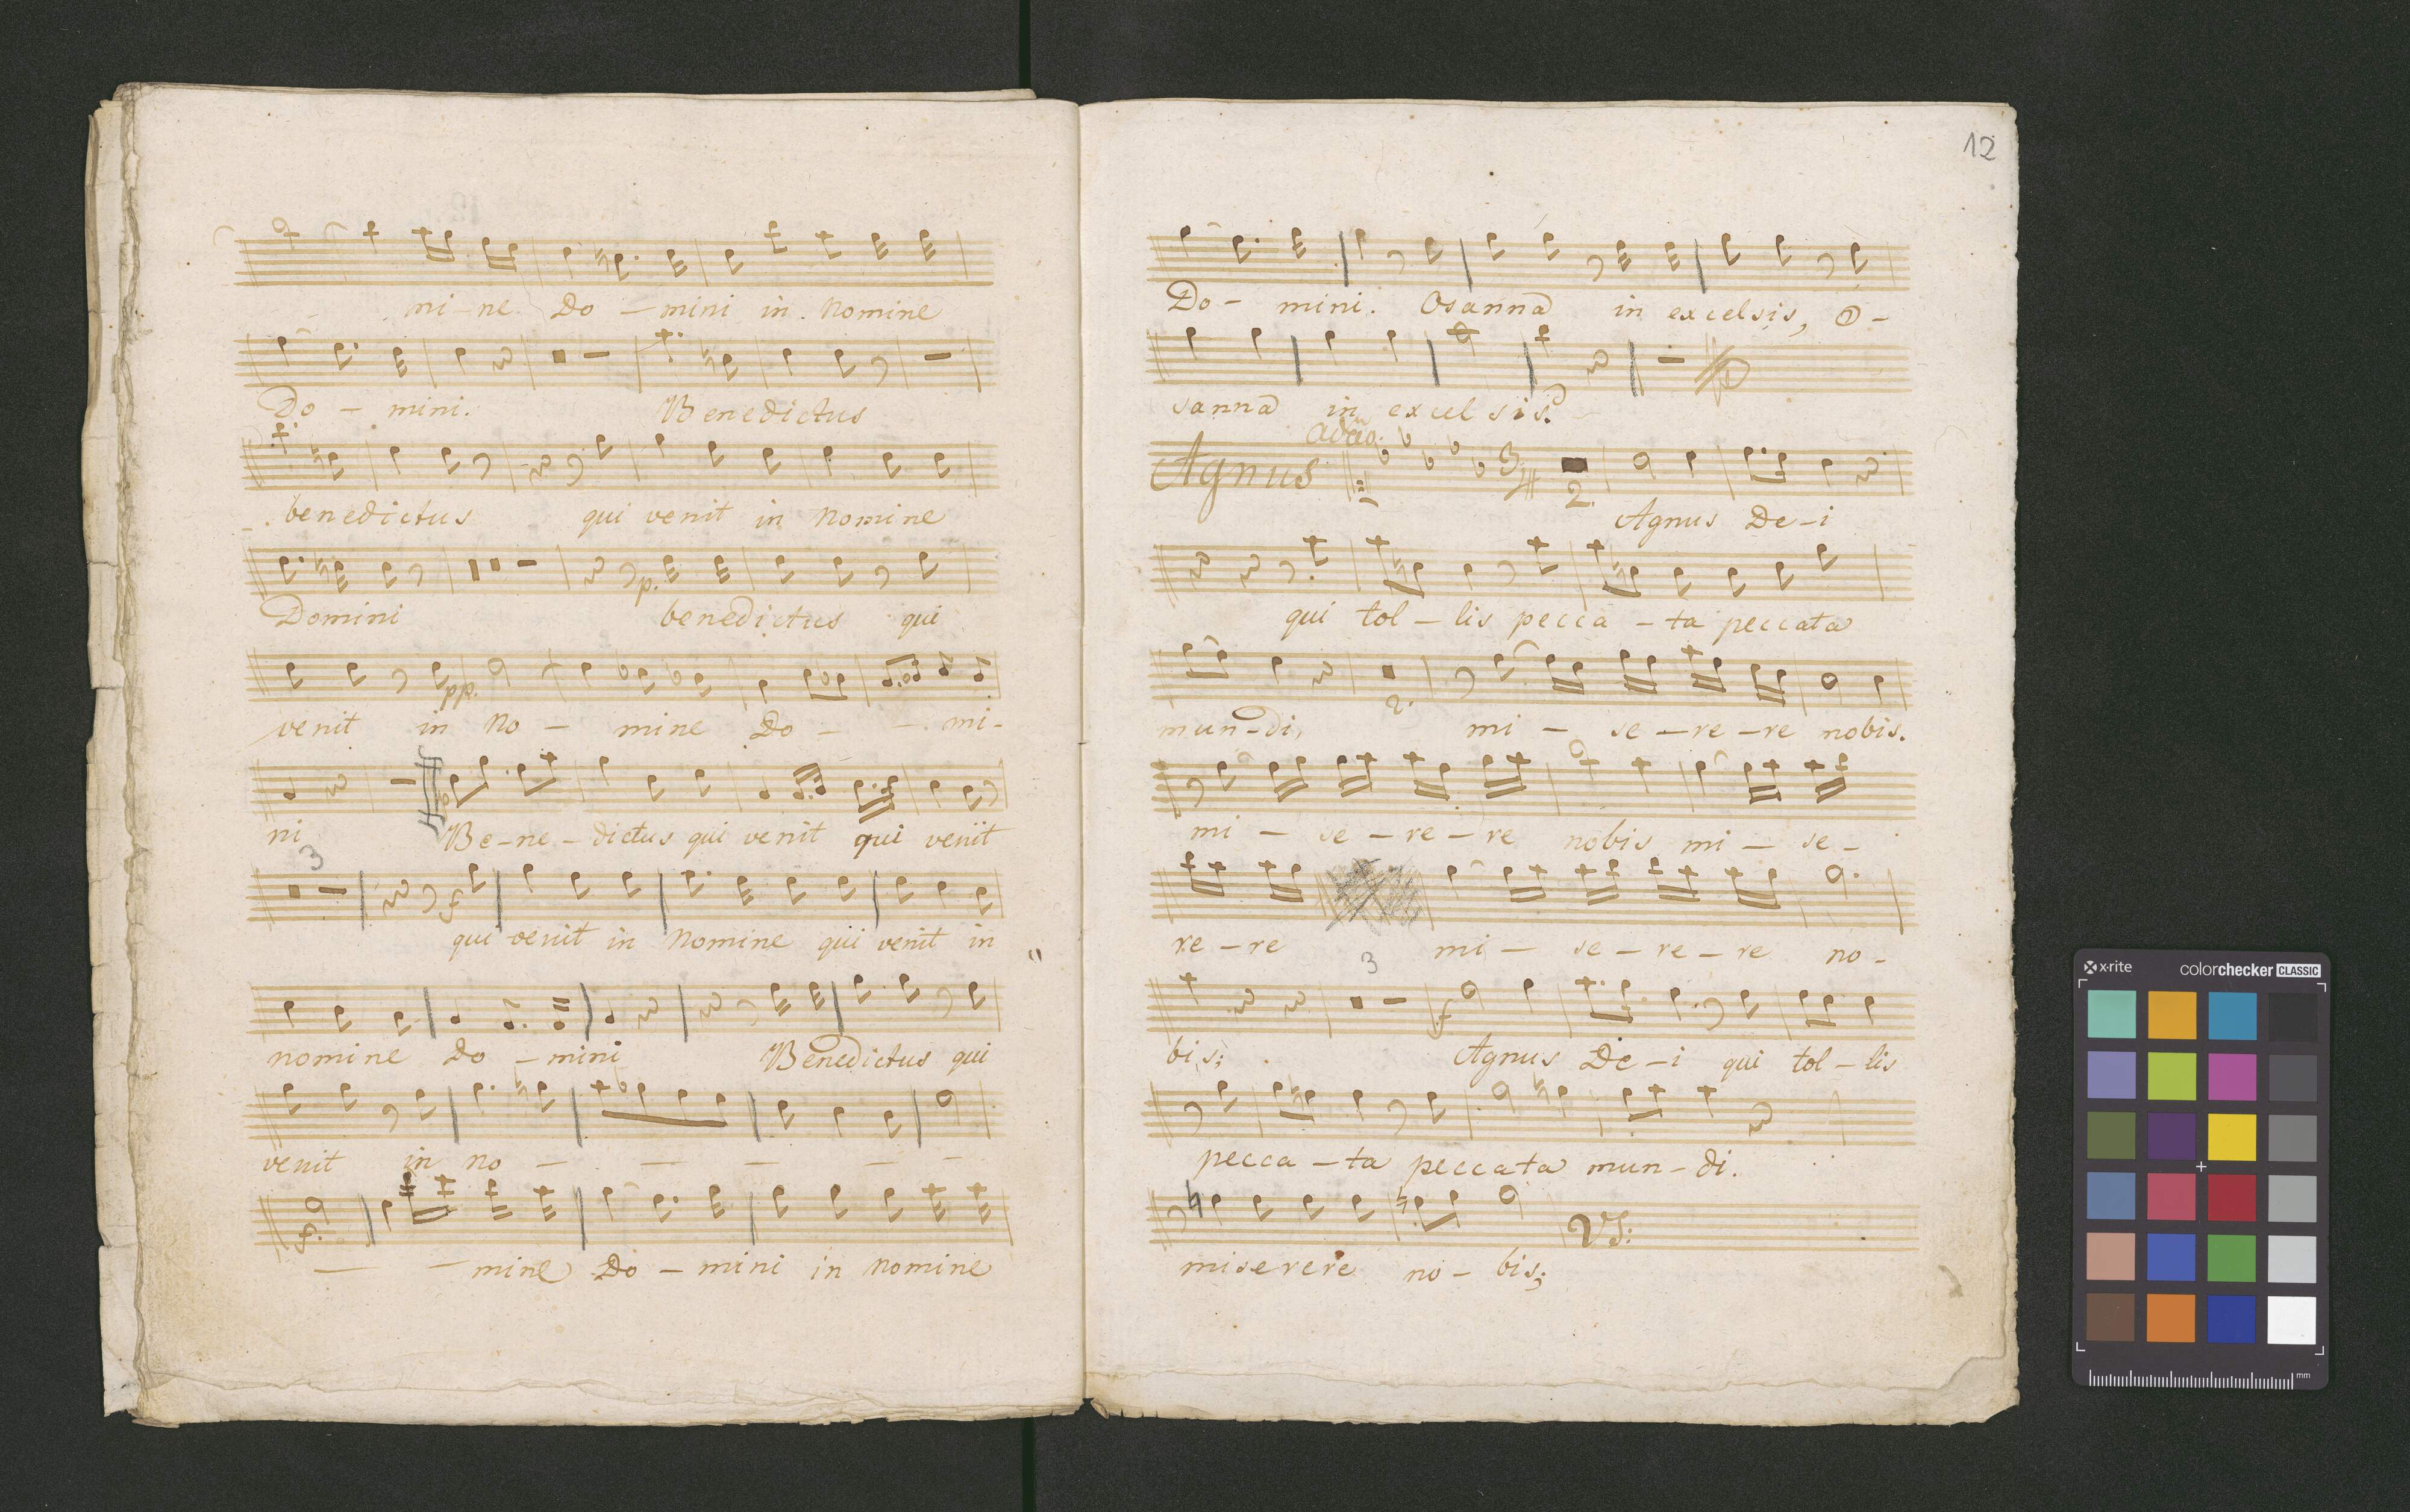 mi-ne Do-mini in Nomine
Do-mini. Benedictus
benedictus qui venit in Nomine
p.
Domini benedictus qui
pp.
venit in No-mine Do--mi-
ni Be-ne-dictus qui venit qui venit
3
f
qui venit in Nomine qui venit in
nomine Do-mini Benedictus qui
venit in no-----
f.
--mine Do-mini in Nomine
12
Do-mini. Osanna in excelsis, O-
sanna in excelsis.
Agnus
3
2.
Agnus De-i
qui tol-lis pecca-ta peccata
2.
mun-di, mi-se-re-re nobis.
mi-se-re-re nobis mi-se-
re-re mi-se-re-re no-
3
f
bis; Agnus De-i qui tol-lis
pecca-ta peccata mun-di.
VS:
miserere no-bis;
x-rite colorchecker CLASSIC
mm